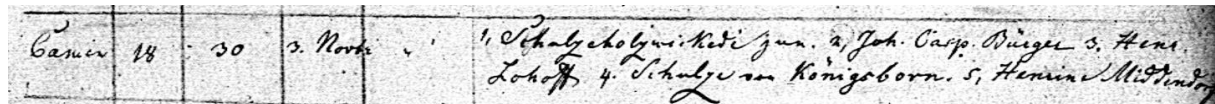 Camen 18 30 3. Novbr " 1, Schulzeholzwickede jun. 2, Joh. Casp. Bürger 3. Henr.
Lohoff 4. Schulze von Königsborn. 5, Henrine Middendorf